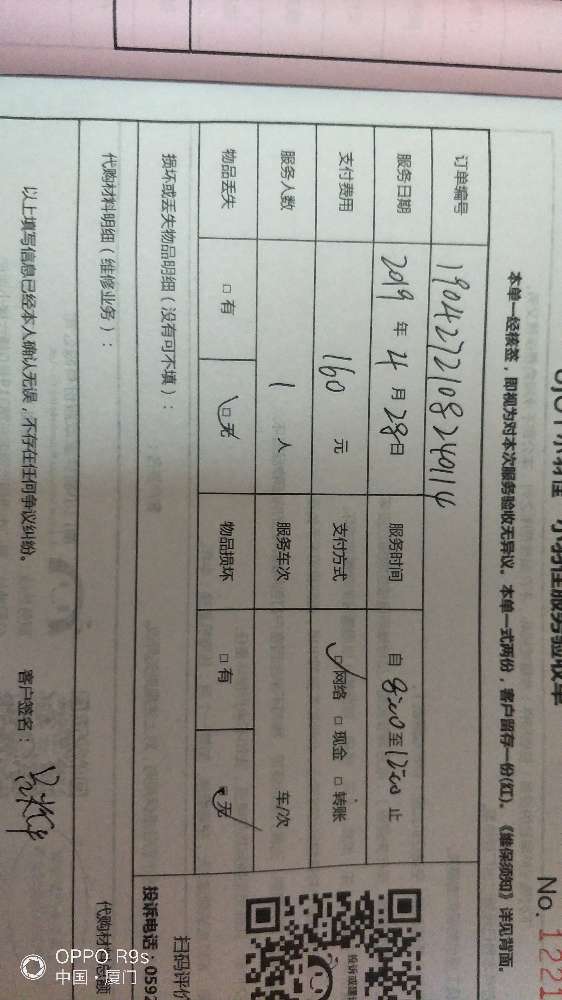 小羽佳服务验收单
No. 1221
本单一经核签，即视为对本次服务验收无异议。本单一式两份，客户留存一份(红)。《维保须知》详见背面。
订单编号 1904272108240114
服务日期 2019 年 4 月 28 日 服务时间 自 8:00 至 12:00 止
支付费用 160 元 支付方式 ☑ 网络 □ 现金 □ 转账
服务人数 1 人 服务车次 车/次
物品丢失 □ 有 ☑ 无 物品损坏 □ 有 ☑ 无
损坏或丢失物品明细（没有可不填）：
扫码评价
投诉电话：0592
代购材料明细（维修业务）：
代购材料总额
以上填写信息已经本人确认无误，不存在任何争议纠纷。 客户签名：
OPPO R9s
中国·厦门